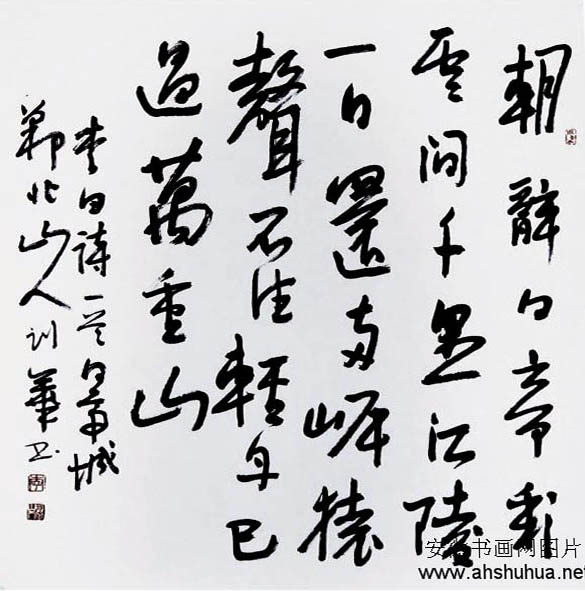 朝辭白帝彩
雲間千里江陵
一日還兩岸猿
聲不住輕舟已
過萬重山
李白詩一首白帝城
北山人訓華书
安徽书画网图片
www.ahshuhua.net